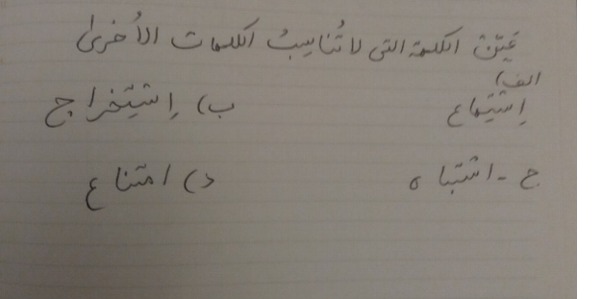 عَیِّنْ الکلمة التی لا تُناسِبُ الکلمات الأُخریٰ
الف) إستِماع ب) إستِخراج
ج - اشتباه د) امتناع